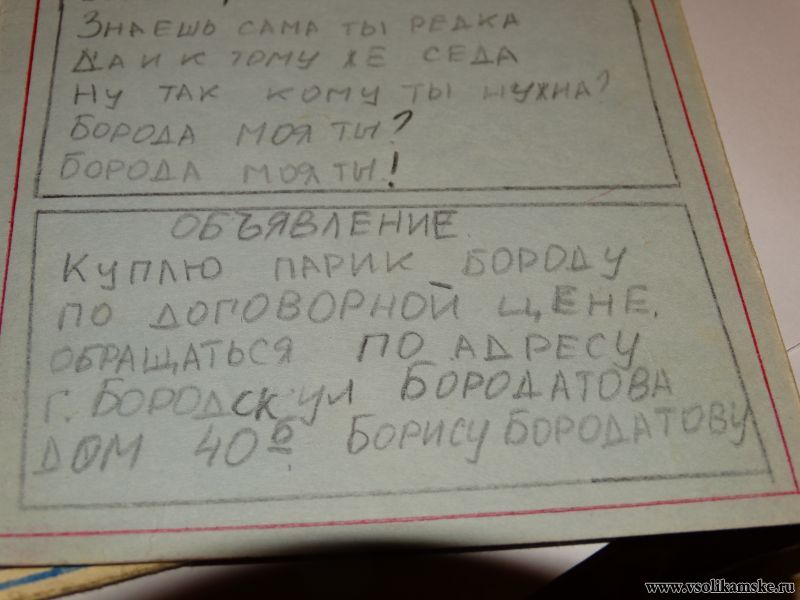 Знаешь сама ты редка
Да и к тому же седа
Ну так кому ты нужна?
Борода моя ты?
Борода моя ты!
Объявление.
Куплю парик бороду
по договорной цене.
обращаться по адресу
г. Бородск ул Бородатова
дом 40 Борису Бородатову
www.vsolikamske.ru